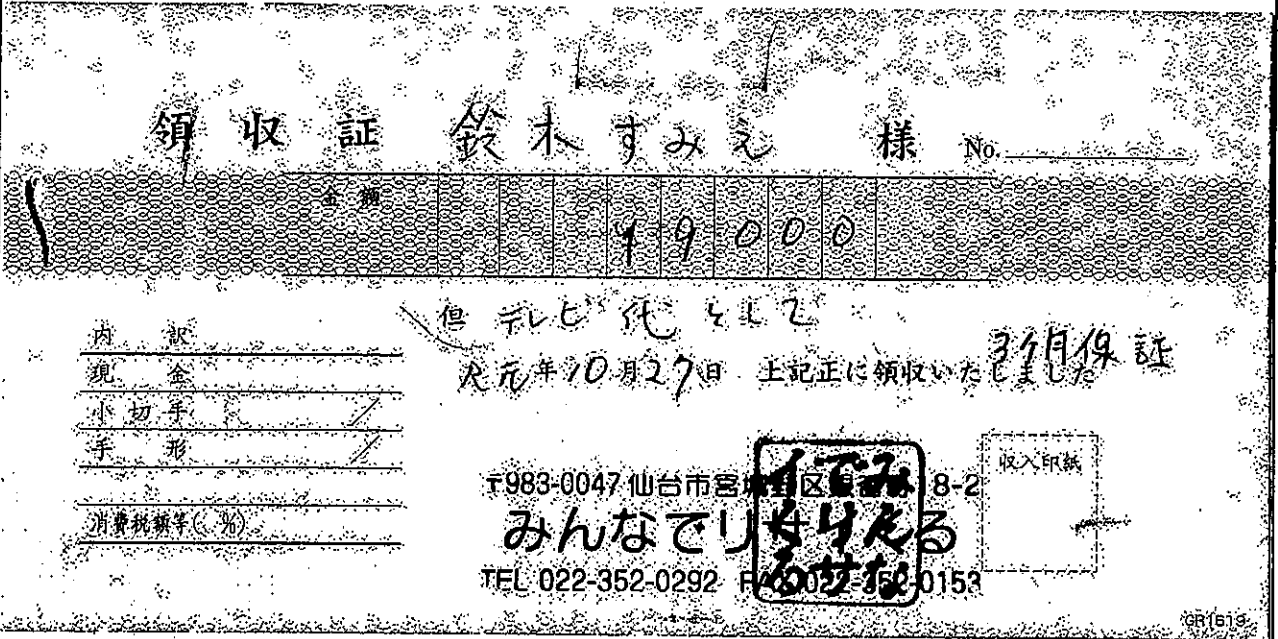 領収証 鈴木すみえ 様 No.
金額 19000
但 テレビ代として
R元年10月27日 上記正に領収いたしました
3ヶ月保証
内訳
現金
小切手
手形
消費税額等( %)
収入印紙
〒983-0047 仙台市宮城野区 8-2
みんなでりさいくる
TEL 022-352-0292 FAX 022-352-0153
GR1619